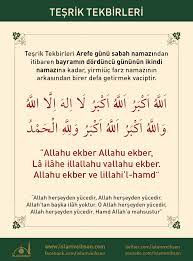 TEŞRİK TEKBİRLERİ
Teşrik Tekbirleri Arefe günü sabah namazından
itibaren bayramın dördüncü gününün ikindi
namazına kadar, yirmiüç farz namazının
arkasından birer defa getirmek vaciptir.
اَللّٰهُ اَكْبَرُ اَللّٰهُ اَكْبَرُ لَا اِلٰهَ اِلَّا اللّٰهُ
وَاللّٰهُ اَكْبَرُ اَللّٰهُ اَكْبَرُ وَلِلّٰهِ الْحَمْدُ
"Allahu ekber Allahu ekber,
Lâ ilâhe illallahu vallahu ekber.
Allahu ekber ve lillahi'l-hamd"
"Allah herşeyden yücedir, Allah herşeyden yücedir.
Allah'tan başka ilâh yoktur. O Allah herşeyden yücedir, Allah
herşeyden yücedir. Hamd Allah'a mahsustur"
www.islamveihsan.com
facebook.com/islamveihsan
twitter.com/islamveihsan